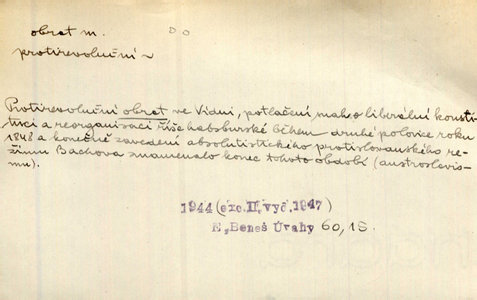 obrat m.
DO
protirevoluční ~
Protirevoluční obrat ve Vídni, potlačení snah o liberální konsti-
tuci a reorganisaci říše habsburské během druhé polovice roku
1848 a konečné zavedení absolutistického protislovanského re-
žimu Bachova znamenalo konec tohoto období (austroslavis-
mu).
1944 (exc. II. vyd. 1947)
E. Beneš Úvahy 60, 15.